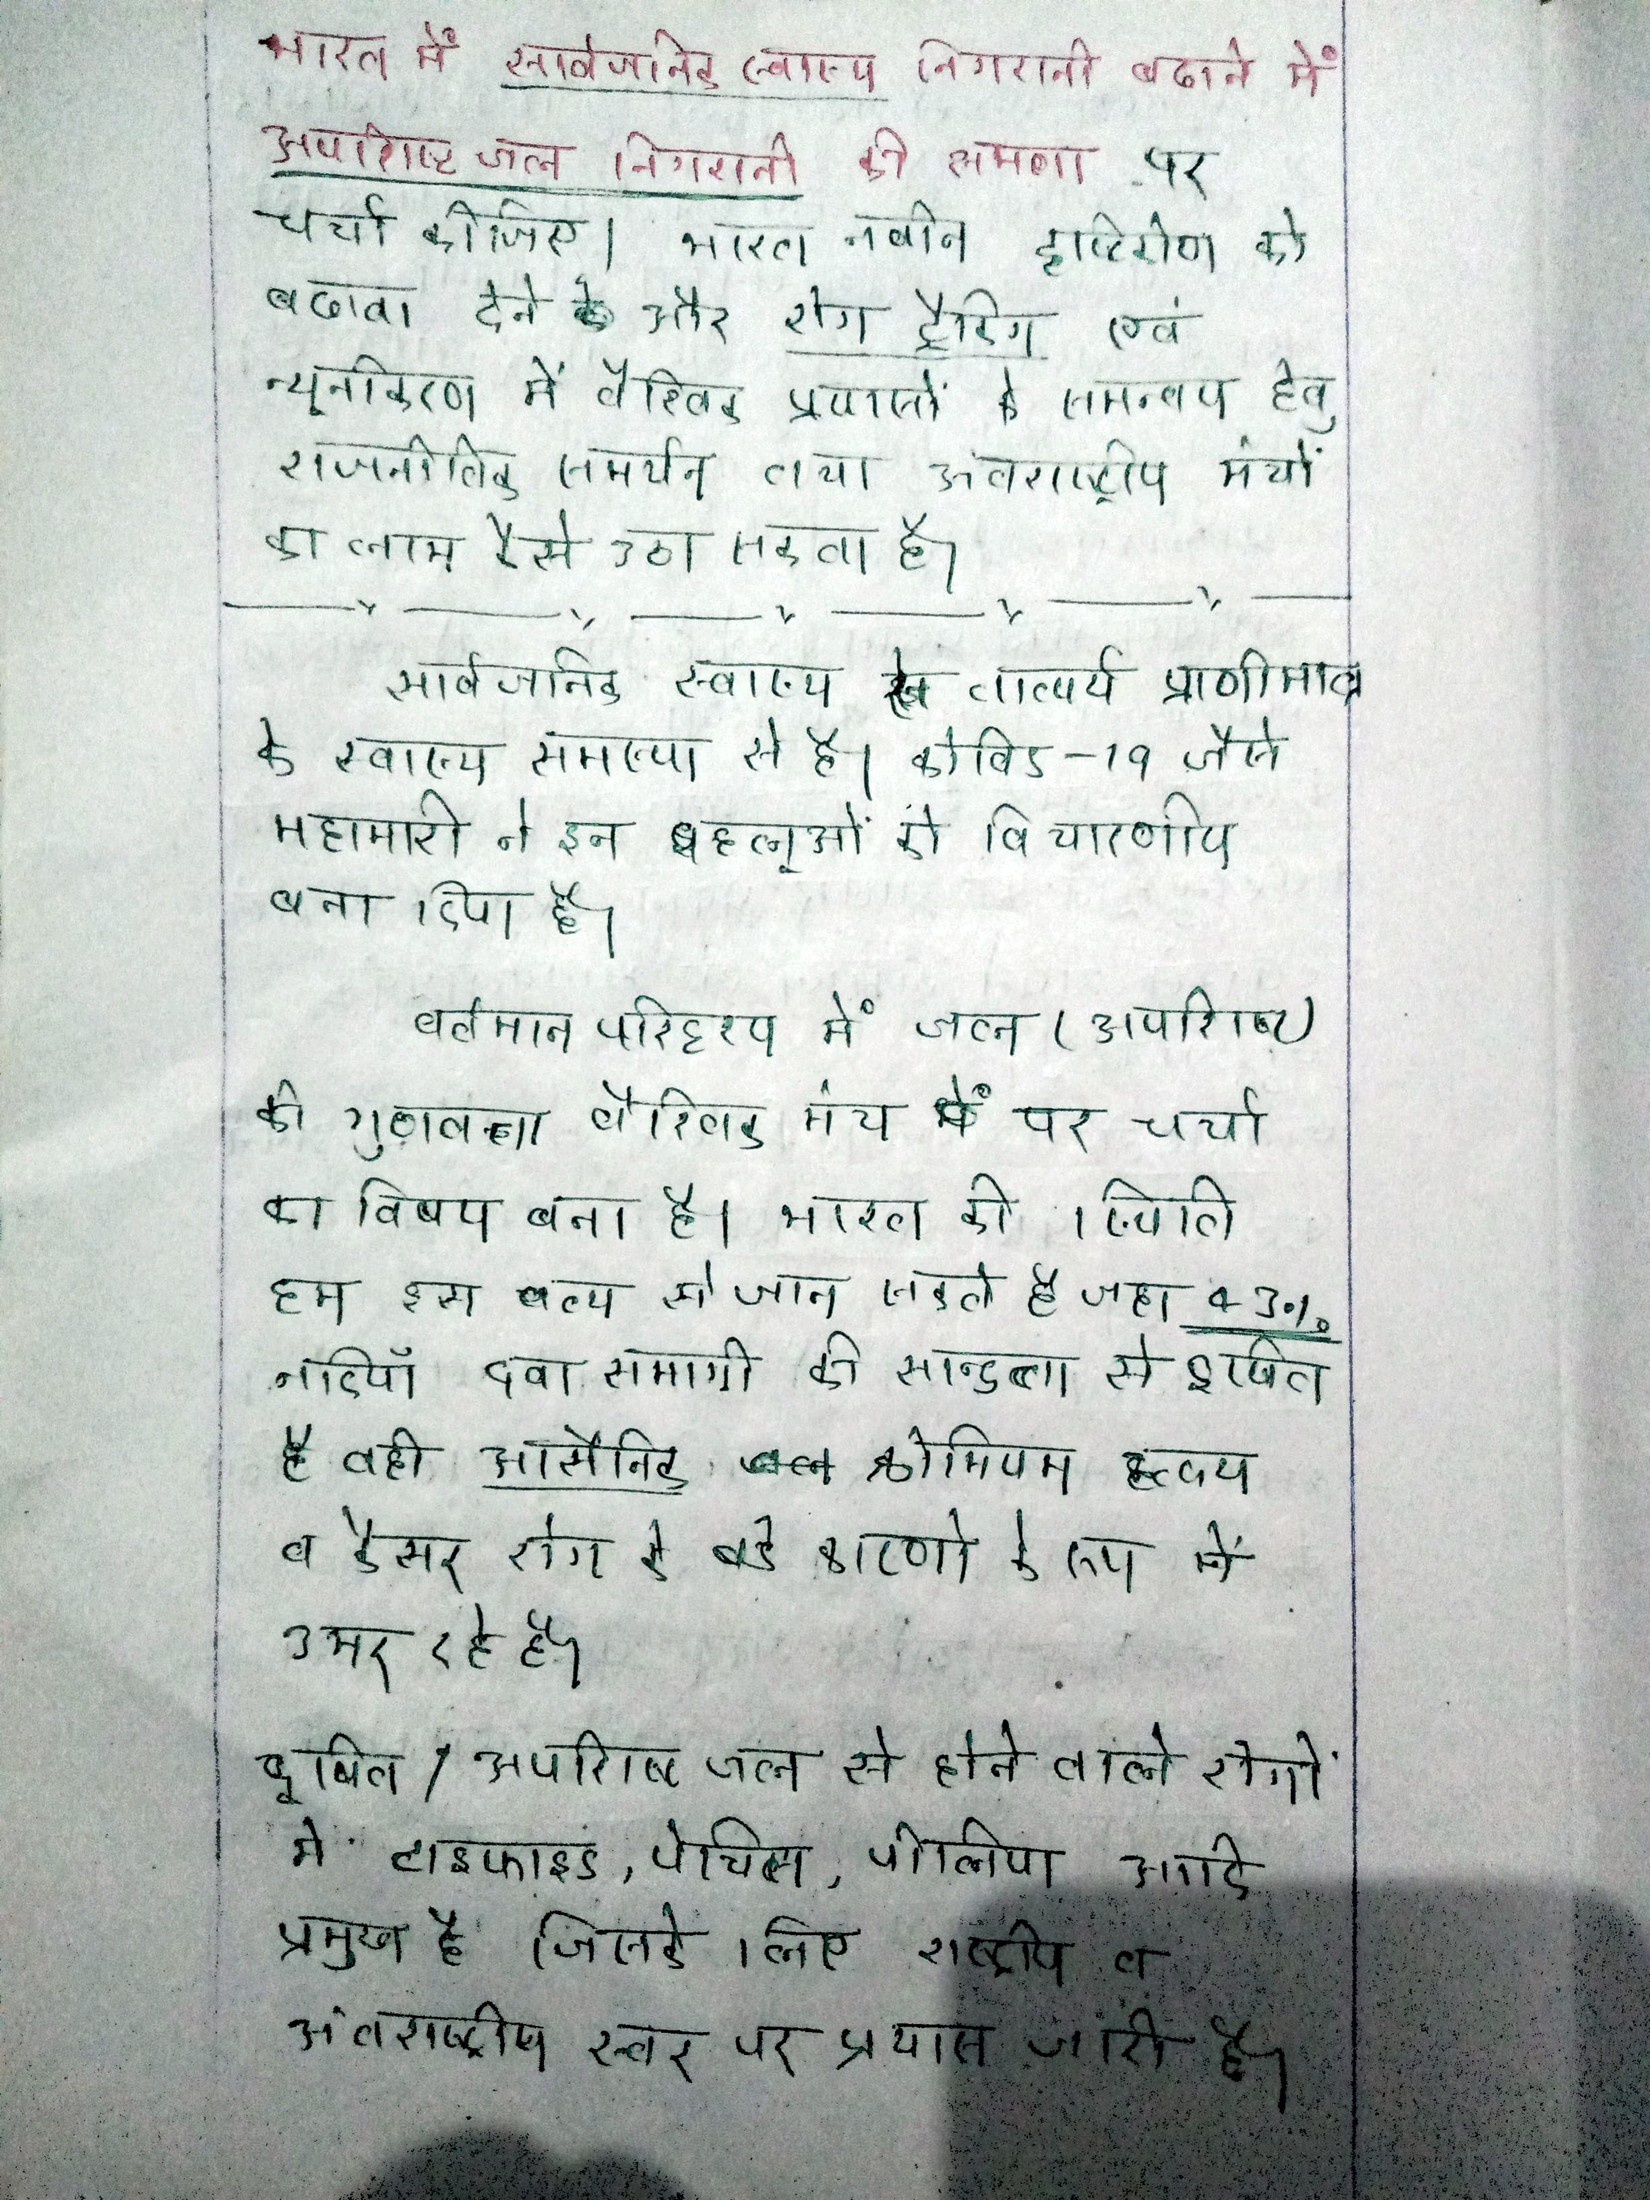 भारत में सार्वजनिक स्वास्थ्य निगरानी बढाने में
अपशिष्ट जल निगरानी की क्षमता पर
चर्चा कीजिए। भारत नवीन दृष्टिकोण को
बढावा देने और रोग ट्रैकिंग एवं
न्यूनीकरण में वैश्विक प्रयासों के समन्वय हेतु
राजनीतिक समर्थन तथा अंतराष्ट्रीय मंचों
का लाभ कैसे उठा सकता है।
सार्वजनिक स्वास्थ्य से तात्पर्य प्राणीमात्र
के स्वास्थ्य समस्या से है। कोविड-19 जैसे
महामारी ने इन पहलूओं को विचारणीय
बना दिया है।
वर्तमान परिदृश्य में जल (अपशिष्ट)
की गुणवत्ता वैश्विक मंच पर चर्चा
का विषय बना है। भारत की स्थिति
हम इस तथ्य से जान सकते है जहा 43%
नदियाँ दवा समाग्री की सान्द्रता से दूषित
है वही आर्सेनिक क्रोमियम
व कैंसर रोग के बडे कारणो के रूप में
उभर रहे है।
दूषित / अपशिष्ट जल से होने वाले रोगों
में टाइफाइड, पेचिस, पीलिया आदि
प्रमुख है जिसके लिए राष्ट्रीय व
अंतराष्ट्रीय स्तर पर प्रयास जारी है।